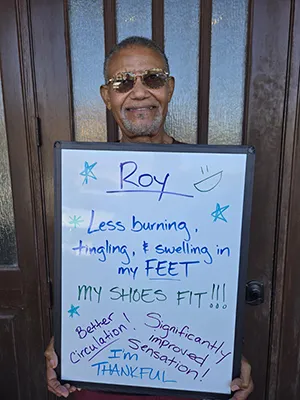 Roy
Less burning,
tingling, & swelling in
my FEET
MY SHOES FIT!!!
Better
Circulation!
Significantly
improved
Sensation!
I'm
THANKFUL